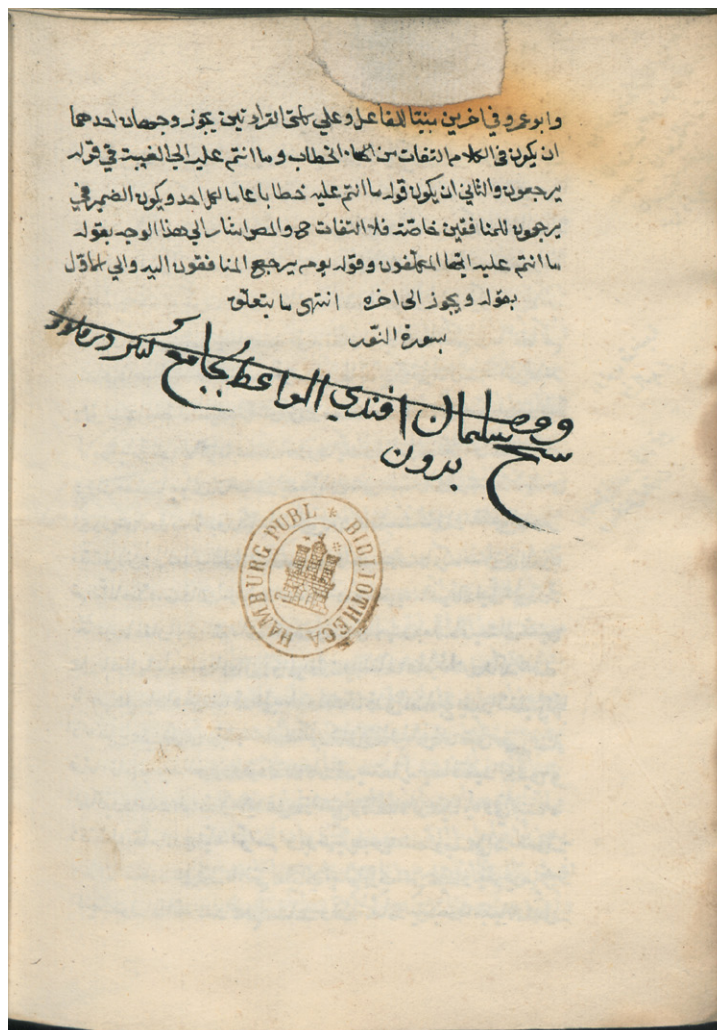 وابو عمرو في اخرين مبنيا للفاعل وعلي كلتي القرادتين يجوز وجهان احدهما
ان يكون في الكلام التفات من الخطاب وما انتم عليه الي الغيبة في قوله
يرجعون والثاني ان يكون قوله ما انتم عليه خطابا عاما لكل احد ويكون الضمير في
يرجعون للمنافقين خاصة فلا التفات ح والمصر اشار الي هذا الوجه بقوله
ما انتم عليه ايها المكلفون وقوله يوم يرجع المنافقون اليه والي الاول
بقوله ويجوز الى اخره انتهى ما يتعلق
بسورة النور
سليمان افندي الواعظ بجامع
بدون
BIBLIOTHECA HAMBURG PUBL